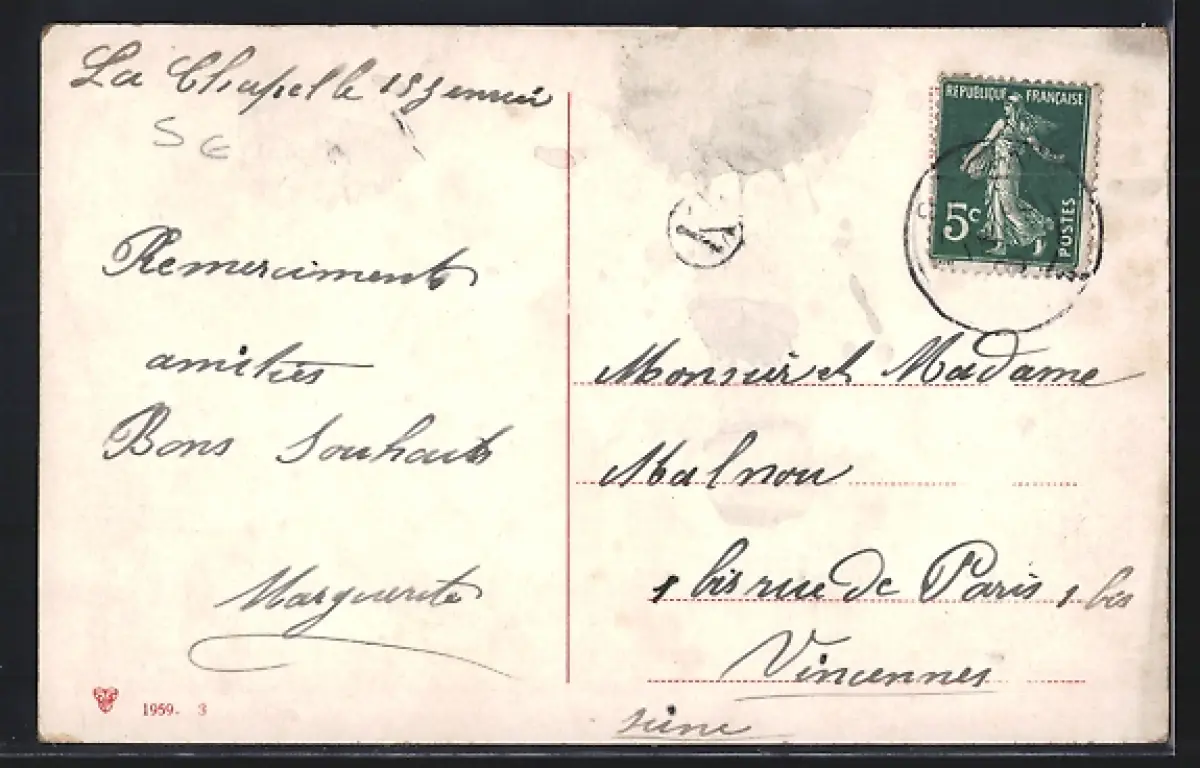 La Chapelle 15 Jenvier
S G
Remerciments
amitiés
Bons Souhaits
Marguerite
1959. 3
REPUBLIQUE FRANÇAISE
5c
POSTES
Monsieur et Madame
Malnou
1 bis rue de Paris 1 bis
Vincennes
Seine